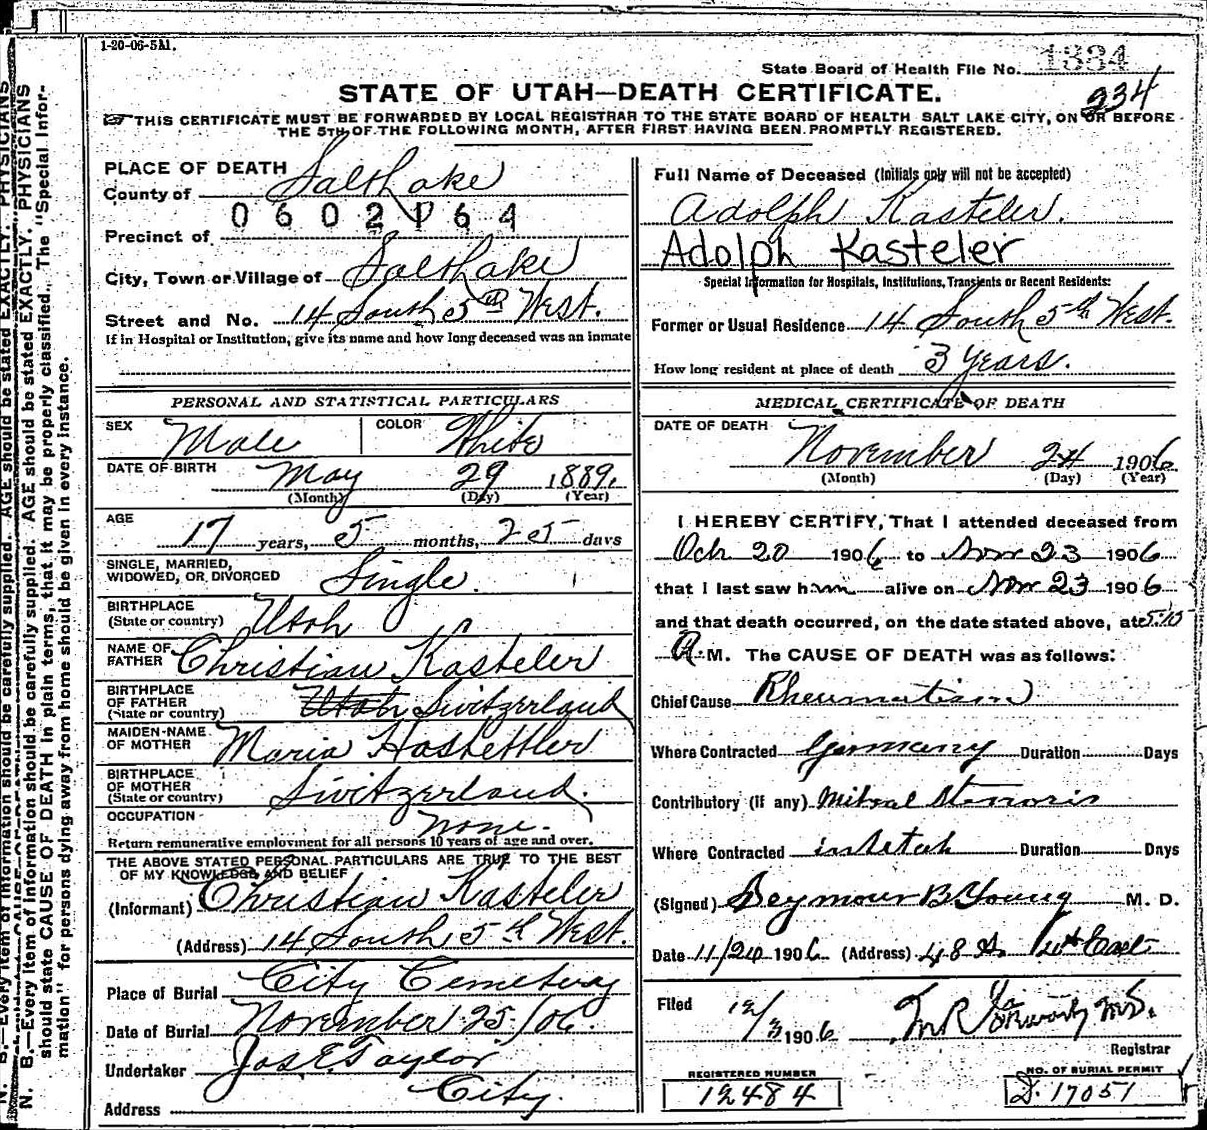 1-20-06-5M.
State Board of Health File No. 1334
STATE OF UTAH—DEATH CERTIFICATE.
234
THIS CERTIFICATE MUST BE FORWARDED BY LOCAL REGISTRAR TO THE STATE BOARD OF HEALTH SALT LAKE CITY, ON OR BEFORE
THE 5TH OF THE FOLLOWING MONTH, AFTER FIRST HAVING BEEN PROMPTLY REGISTERED.
PLACE OF DEATH
County of Salt Lake
0602164
Precinct of
City, Town or Village of Salt Lake
Street and No. 14 South 5th West.
If in Hospital or Institution, give its name and how long deceased was an inmate
Full Name of Deceased (Initials only will not be accepted)
Adolph Kasteler.
Adolph Kasteler
Special Information for Hospitals, Institutions, Transients or Recent Residents:
Former or Usual Residence 14 South 5th West.
How long resident at place of death 3 years.
PERSONAL AND STATISTICAL PARTICULARS
SEX Male COLOR White
DATE OF BIRTH May 29 1889.
(Month) (Day) (Year)
AGE 17 years, 5 months, 25 days
SINGLE, MARRIED,
WIDOWED, OR DIVORCED Single.
BIRTHPLACE
(State or country) Utah
NAME OF
FATHER Christian Kasteler
BIRTHPLACE
OF FATHER
(State or country) Utah Switzerland
MAIDEN-NAME
OF MOTHER Maria Hostettler
BIRTHPLACE
OF MOTHER
(State or country) Switzerland.
OCCUPATION none.
Return remunerative employment for all persons 10 years of age and over.
THE ABOVE STATED PERSONAL PARTICULARS ARE TRUE TO THE BEST
OF MY KNOWLEDGE AND BELIEF
(Informant) Christian Kasteler
(Address) 14 South 5th West.
Place of Burial City Cemetery
Date of Burial November 25/06.
Undertaker Jos E. Taylor
Address City.
MEDICAL CERTIFICATE OF DEATH
DATE OF DEATH November 24 1906
(Month) (Day) (Year)
I HEREBY CERTIFY, That I attended deceased from
Oct 20 1906 to Nov 23 1906
that I last saw him alive on Nov 23 1906
and that death occurred, on the date stated above, at 5:15
A.M. The CAUSE OF DEATH was as follows:
Chief Cause Rheumatism
Where Contracted Germany Duration Days
Contributory (if any) Mitral Stenosis
Where Contracted in Utah Duration Days
(Signed) Seymour B Young M. D.
Date 11/24 1906 (Address) 48 S. East
Filed 12/3 1906
Registrar
REGISTERED NUMBER
12484
NO. OF BURIAL PERMIT
D. 17051
N. B.—Every item of information should be carefully supplied. AGE should be stated EXACTLY. PHYSICIANS
should state CAUSE OF DEATH in plain terms, that it may be properly classified. The "Special Infor-
mation" for persons dying away from home should be given in every instance.